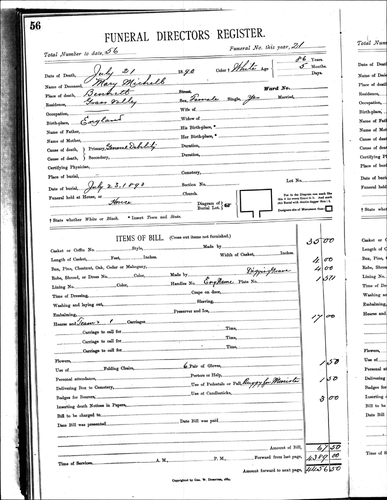 56
FUNERAL DIRECTORS REGISTER.
Total Number to date, 56 Funeral No. this year, 21
Date of Death, July 21 1890 Color † White Age 86 Years.
5 Months.
Days.
Name of Deceased, Mary Michell
Place of death, Bennett Street. Ward No.
Residence, Grass Valley Sex, Female Single, Yes Married,
Occupation, Wife of
Birth-place, England Widow of
Name of Father, His Birth-place,*
Name of Mother, Her Birth-place,*
Cause of death, Primary, General Debility Duration,
Cause of death, Secondary, Duration,
Certifying Physician,
Place of burial, Cemetery,
Date of burial, July 23, 1890 Section No. Lot No.
Funeral held at House, or Church. House
Diagram of Burial Lot.
† State whether White or Black. * Insert Town and State.
ITEMS OF BILL. (Cross out items not furnished.)
Casket or Coffin No. Style, Made by 35 00
Length of Casket, Feet, Inches. Width of Casket, Inches.
Box, Pine, Chestnut, Oak, Cedar or Mahogany, 4 00
Robe, Shroud, or Dress No. Color, Made by 4 00
Lining No. Color, Handles No. Plate No. 1 50
Time of Dressing, Coups on door,
Washing and laying out, Shaving,
Embalming, Preserver and Ice,
Hearse and Team & 1 Carriages 17 00
Carriage to call for Time,
Carriage to call for Time,
Carriage to call for Time,
Carriage to call for Time,
Flowers,
Use of Folding Chairs, 6 Pair of Gloves, 1 50
Personal attendance, Porters or Help,
Delivering Box to Cemetery, Use of Pedestals or Pall, Buggy for Minister 1 50
Badges for Bearers, Use of Candlesticks, 3 00
Inserting death Notices in Papers,
Bill to be charged to
Date Bill was presented Date Bill was paid
Amount of Bill, 67 50
Forward from last page, 4389 00
Time of Services, A. M., P. M., Amount forward to next page, 4456 50